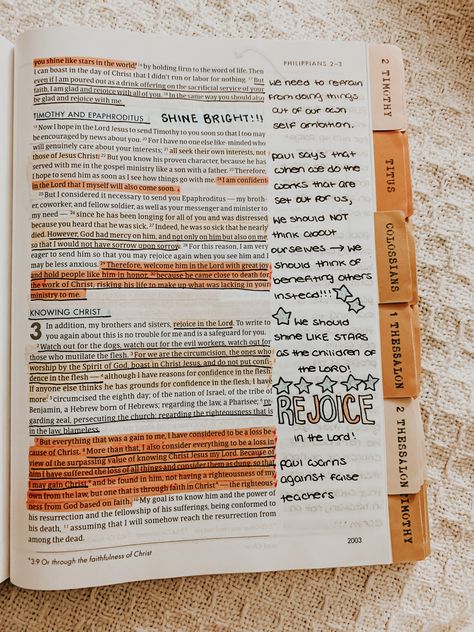 PHILIPPIANS 2–3
you shine like stars in the world, 16 by holding firm to the word of life. Then
I can boast in the day of Christ that I didn't run or labor for nothing. 17 But
even if I am poured out as a drink offering on the sacrificial service of your
faith, I am glad and rejoice with all of you. 18 In the same way you should also
be glad and rejoice with me.
TIMOTHY AND EPAPHRODITUS
SHINE BRIGHT!!!
19 Now I hope in the Lord Jesus to send Timothy to you soon so that I too may
be encouraged by news about you. 20 For I have no one else like-minded who
will genuinely care about your interests; 21 all seek their own interests, not
those of Jesus Christ. 22 But you know his proven character, because he has
served with me in the gospel ministry like a son with a father. 23 Therefore,
I hope to send him as soon as I see how things go with me. 24 I am confident
in the Lord that I myself will also come soon.
25 But I considered it necessary to send you Epaphroditus — my broth-
er, coworker, and fellow soldier, as well as your messenger and minister to
my need — 26 since he has been longing for all of you and was distressed
because you heard that he was sick. 27 Indeed, he was so sick that he nearly
died. However, God had mercy on him, and not only on him but also on me,
so that I would not have sorrow upon sorrow. 28 For this reason, I am very
eager to send him so that you may rejoice again when you see him and I
may be less anxious. 29 Therefore, welcome him in the Lord with great joy
and hold people like him in honor, 30 because he came close to death for
the work of Christ, risking his life to make up what was lacking in your
ministry to me.
KNOWING CHRIST
3 In addition, my brothers and sisters, rejoice in the Lord. To write to
you again about this is no trouble for me and is a safeguard for you.
2 Watch out for the dogs, watch out for the evil workers, watch out for
those who mutilate the flesh. 3 For we are the circumcision, the ones who
worship by the Spirit of God, boast in Christ Jesus, and do not put confi-
dence in the flesh — 4 although I have reasons for confidence in the flesh.
If anyone else thinks he has grounds for confidence in the flesh, I have
more: 5 circumcised the eighth day; of the nation of Israel, of the tribe of
Benjamin, a Hebrew born of Hebrews; regarding the law, a Pharisee; 6 re-
garding zeal, persecuting the church; regarding the righteousness that is
in the law, blameless.
7 But everything that was a gain to me, I have considered to be a loss be-
cause of Christ. 8 More than that, I also consider everything to be a loss in
view of the surpassing value of knowing Christ Jesus my Lord. Because of
him I have suffered the loss of all things and consider them as dung, so that
I may gain Christ 9 and be found in him, not having a righteousness of my
own from the law, but one that is through faith in Christ* — the righteous-
ness from God based on faith. 10 My goal is to know him and the power of
his resurrection and the fellowship of his sufferings, being conformed to
his death, 11 assuming that I will somehow reach the resurrection from
among the dead.
*3:9 Or through the faithfulness of Christ
2003
we need to refrain
from doing things
out of our own
self ambition.
Paul says that
when we do the
works that are
set out for us,
we should NOT
think about
ourselves → we
should think of
benefiting others
instead!!!
we should
shine LIKE STARS
as the children of
the LORD!
REJOICE
in the Lord!
Paul warns
against false
teachers
2 TIMOTHY
TITUS
COLOSSIANS
1 THESSALON
2 THESSALON
TIMOTHY